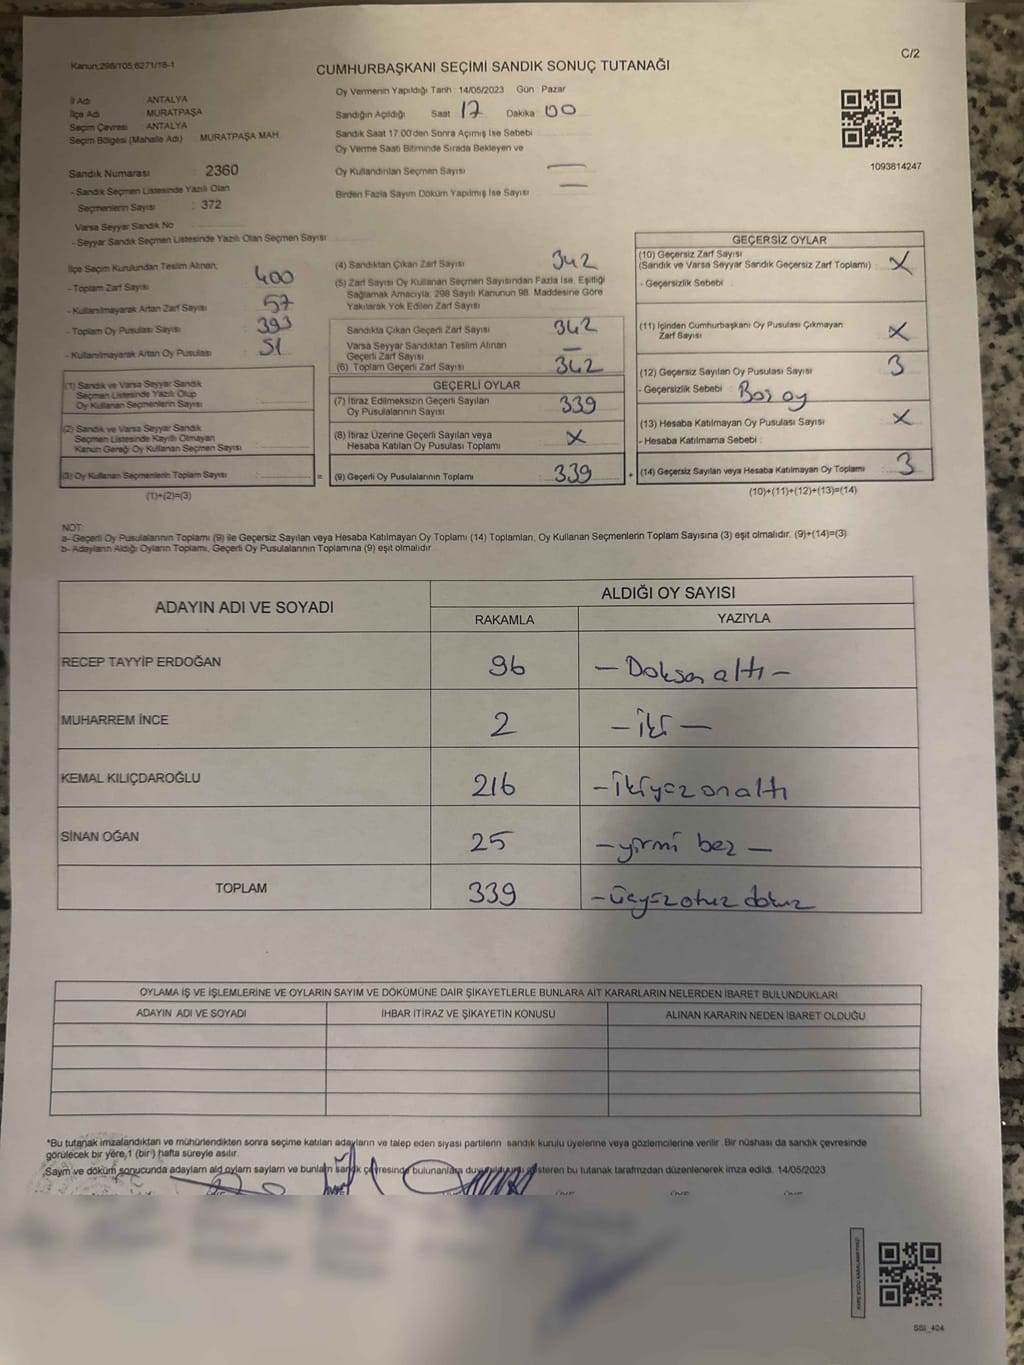 Kanun:298/105;6271/18-1
C/2
CUMHURBAŞKANI SEÇİMİ SANDIK SONUÇ TUTANAĞI
İl Adı ANTALYA
İlçe Adı MURATPAŞA
Seçim Çevresi ANTALYA
Seçim Bölgesi (Mahalle Adı) MURATPAŞA MAH.
Sandık Numarası : 2360
- Sandık Seçmen Listesinde Yazılı Olan
Seçmenlerin Sayısı : 372
Varsa Seyyar Sandık No
- Seyyar Sandık Seçmen Listesinde Yazılı Olan Seçmen Sayısı
Oy Vermenin Yapıldığı Tarih : 14/05/2023 Gün Pazar
Sandığın Açıldığı Saat 17 Dakika 00
Sandık Saat 17:00'den Sonra Açımış İse Sebebi
Oy Verme Saati Bitiminde Sırada Bekleyen ve
Oy Kullandırılan Seçmen Sayısı —
Birden Fazla Sayım Döküm Yapılmış İse Sayısı —
1093814247
İlçe Seçim Kurulundan Teslim Alınan;
- Toplam Zarf Sayısı 400
- Kullanılmayarak Artan Zarf Sayısı 57
- Toplam Oy Pusulası Sayısı 393
- Kullanılmayarak Artan Oy Pusulası 51
(1) Sandık ve Varsa Seyyar Sandık
Seçmen Listesinde Yazılı Olup
Oy Kullanan Seçmenlerin Sayısı
(2) Sandık ve Varsa Seyyar Sandık
Seçmen Listesinde Kayıtlı Olmayan
Kanun Gereği Oy Kullanan Seçmen Sayısı
(3) Oy Kullanan Seçmenlerin Toplam Sayısı =
(1)+(2)=(3)
(4) Sandıktan Çıkan Zarf Sayısı 342
(5) Zarf Sayısı Oy Kullanan Seçmen Sayısından Fazla İse, Eşitliği
Sağlamak Amacıyla; 298 Sayılı Kanunun 98. Maddesine Göre
Yakılarak Yok Edilen Zarf Sayısı
Sandıkta Çıkan Geçerli Zarf Sayısı 342
Varsa Seyyar Sandıktan Teslim Alınan
Geçerli Zarf Sayısı —
(6) Toplam Geçerli Zarf Sayısı 342
GEÇERLİ OYLAR
(7) İtiraz Edilmeksizin Geçerli Sayılan
Oy Pusulalarının Sayısı 339
(8) İtiraz Üzerine Geçerli Sayılan veya
Hesaba Katılan Oy Pusulası Toplamı X
(9) Geçerli Oy Pusulalarının Toplamı 339 +
GEÇERSİZ OYLAR
(10) Geçersiz Zarf Sayısı
(Sandık ve Varsa Seyyar Sandık Geçersiz Zarf Toplamı) : X
- Geçersizlik Sebebi :
(11) İçinden Cumhurbaşkanı Oy Pusulası Çıkmayan
Zarf Sayısı X
(12) Geçersiz Sayılan Oy Pusulası Sayısı 3
- Geçersizlik Sebebi : Boş oy
(13) Hesaba Katılmayan Oy Pusulası Sayısı X
- Hesaba Katılmama Sebebi :
(14) Geçersiz Sayılan veya Hesaba Katılmayan Oy Toplamı 3
(10)+(11)+(12)+(13)=(14)
NOT
a- Geçerli Oy Pusulalarının Toplamı (9) ile Geçersiz Sayılan veya Hesaba Katılmayan Oy Toplamı (14) Toplamları, Oy Kullanan Seçmenlerin Toplam Sayısına (3) eşit olmalıdır. (9)+(14)=(3)
b- Adayların Aldığı Oyların Toplamı, Geçerli Oy Pusulalarının Toplamına (9) eşit olmalıdır
ADAYIN ADI VE SOYADI
ALDIĞI OY SAYISI
RAKAMLA YAZIYLA
RECEP TAYYİP ERDOĞAN 96 — Doksan altı —
MUHARREM İNCE 2 — iki —
KEMAL KILIÇDAROĞLU 216 — ikiyüz onaltı
SİNAN OĞAN 25 — yirmi beş —
TOPLAM 339 — üçyüzotuz dokuz
OYLAMA İŞ VE İŞLEMLERİNE VE OYLARIN SAYIM VE DÖKÜMÜNE DAİR ŞİKAYETLERLE BUNLARA AİT KARARLARIN NELERDEN İBARET BULUNDUKLARI
ADAYIN ADI VE SOYADI İHBAR İTİRAZ VE ŞİKAYETİN KONUSU ALINAN KARARIN NEDEN İBARET OLDUĞU
*Bu tutanak imzalandıktan ve mühürlendikten sonra seçime katılan adayların ve talep eden siyasi partilerin sandık kurulu üyelerine veya gözlemcilerine verilir. Bir nüshası da sandık çevresinde
görülecek bir yere,1 (bir) hafta süreyle asılır.
Sayım ve döküm sonucunda adayların aldı oyların sayların ve bunların sandık çevresinde bulunanlara gösteren bu tutanak tarafımzdan düzenlenerek imza edildi. 14/05/2023
SSI_404